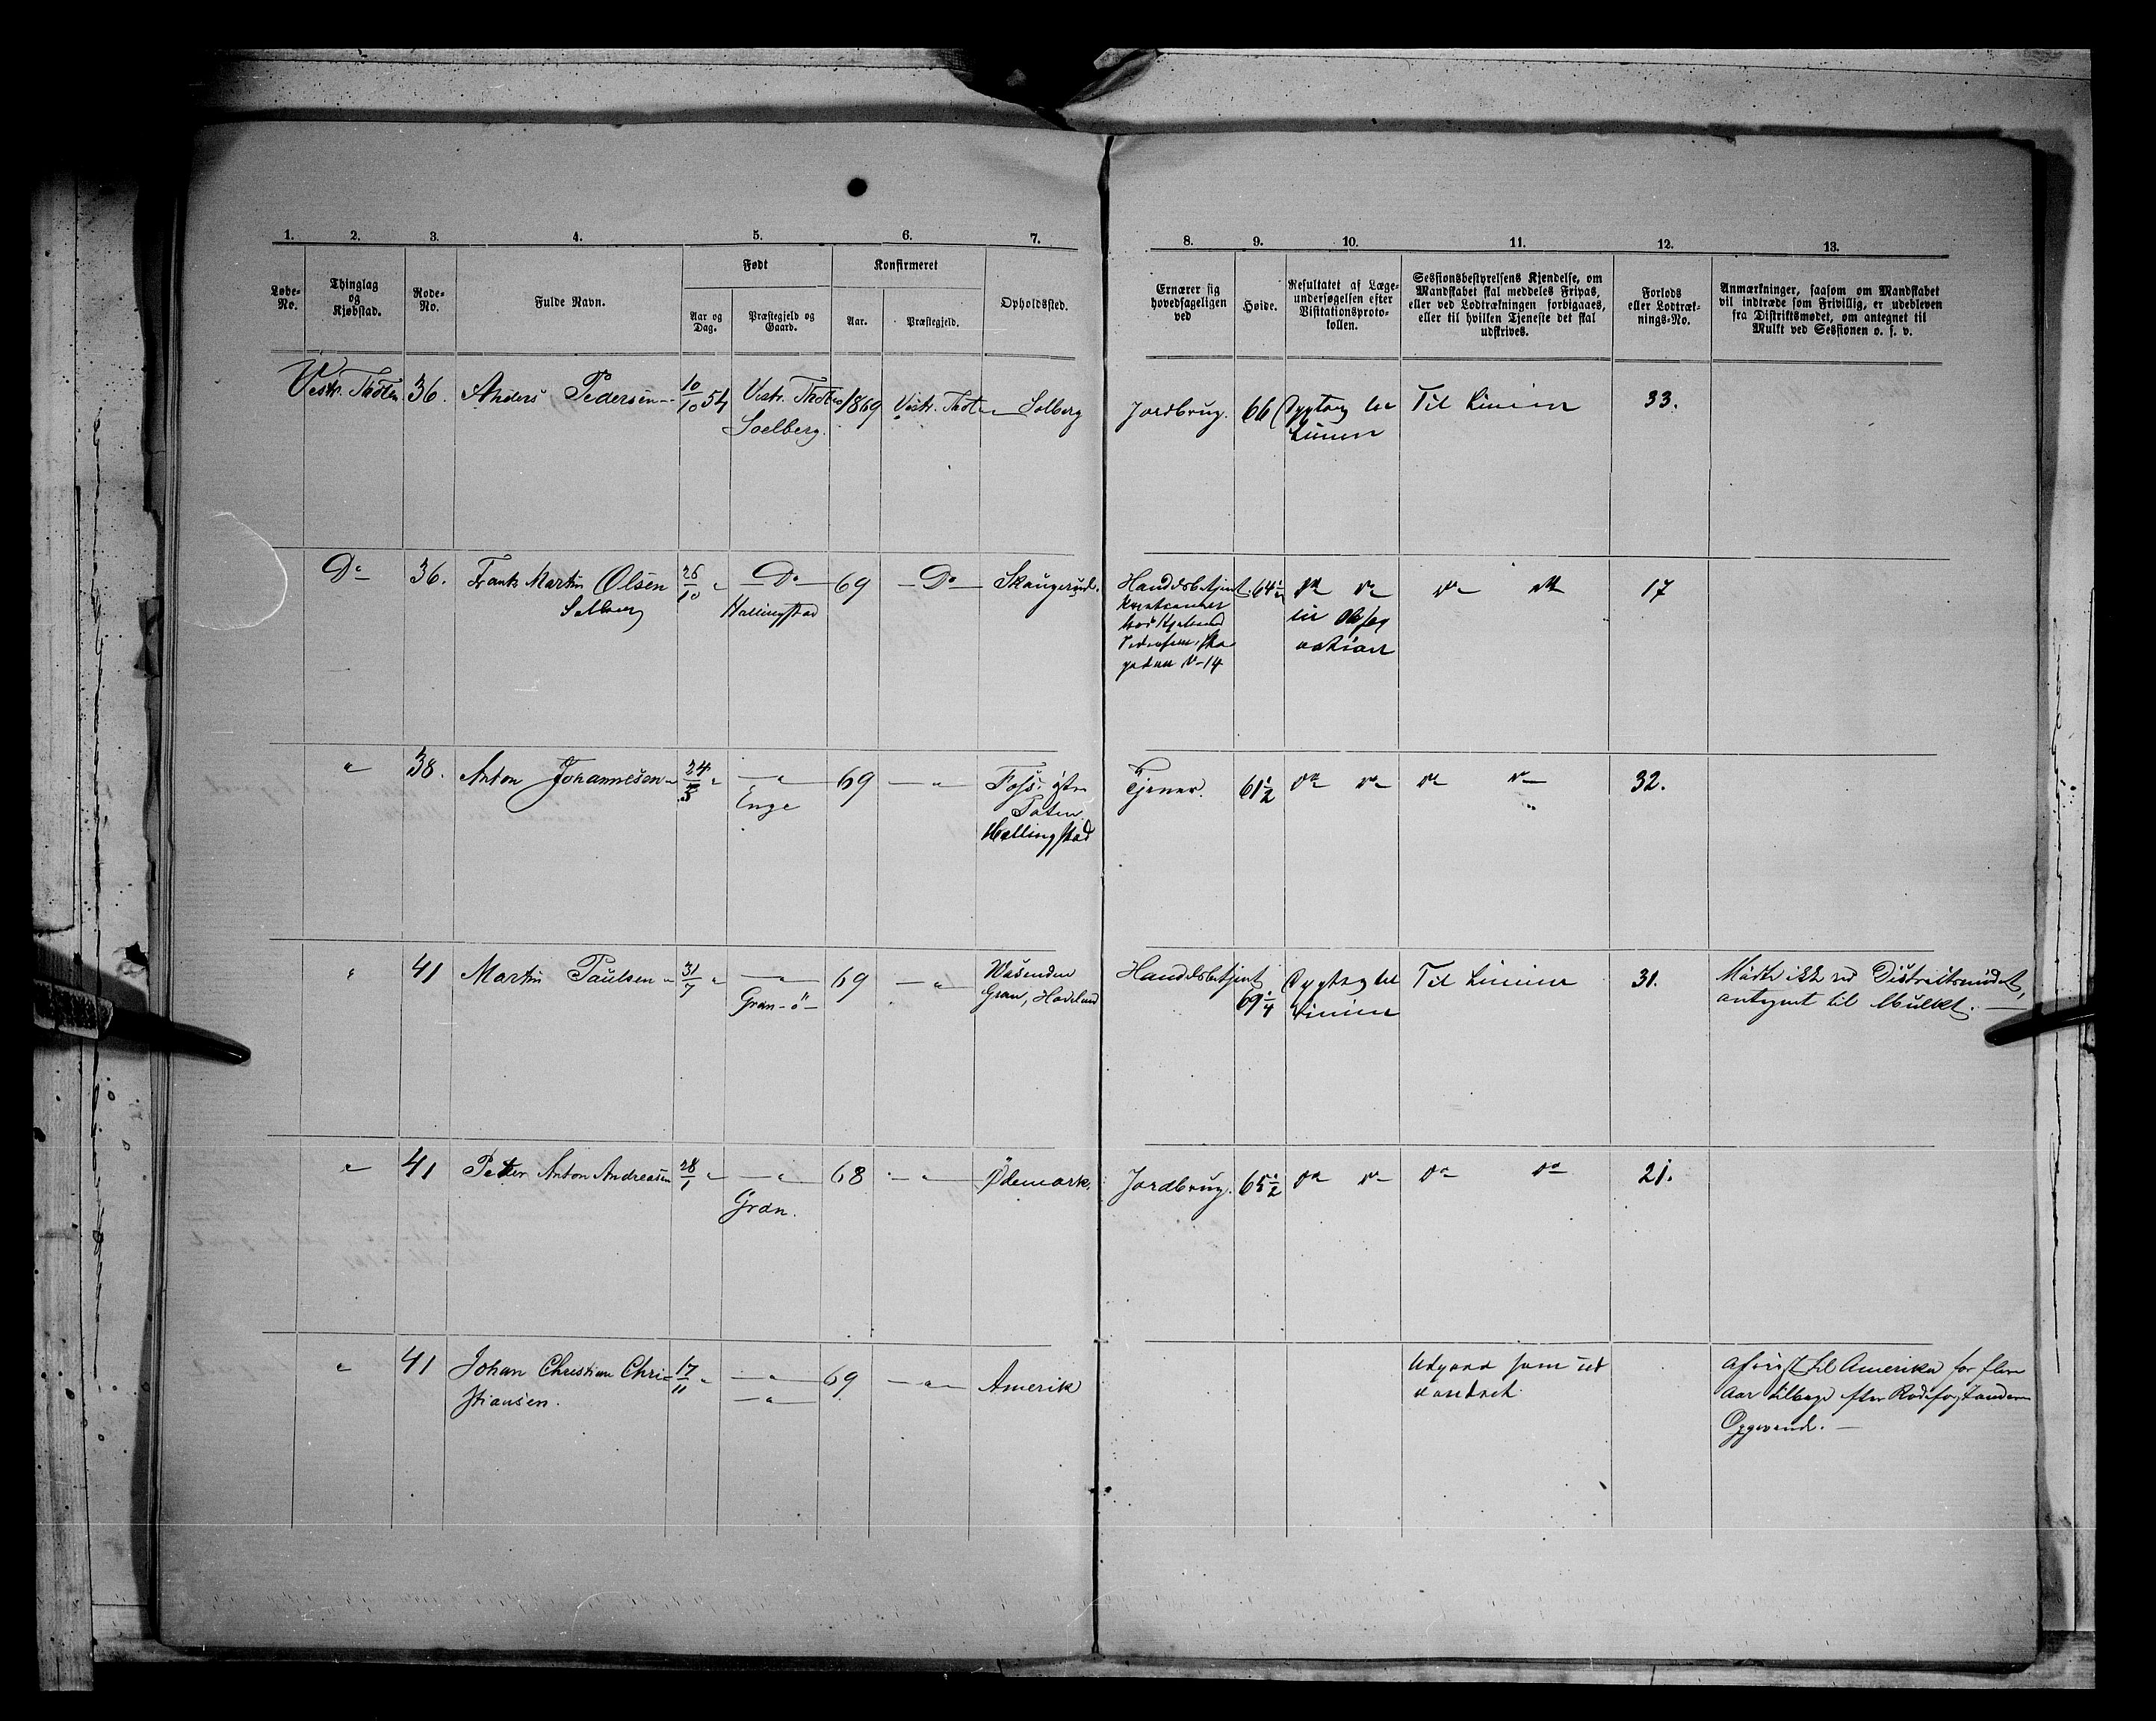 1. 2. 3. 4. 5. 6. 7. 8. 9. 10. 11. 12. 13.
Løbe-No.
Thinglag og Kjøbstad.
Rode-No.
Fulde Navn.
Født
Aar og Dag.
Præstegjeld og Gaard.
Konfirmeret
Aar.
Præstegjeld.
Opholdssted.
Ernærer sig hovedsageligen ved
Høide.
Resultatet af Læge-
undersøgelsen efter
Visitationsproto-
kollen.
Sessionsbestyrelsens Kjendelse, om
Mandskabet skal meddeles Fripas,
eller ved Lodtrækningen forbigaaes,
eller til hvilken Tjeneste det skal
udskrives.
Forlods
eller Lodtræk-
nings-No.
Anmærkninger, saasom om Mandskabet
vil indtræde som Frivillig, er udebleven
fra Distriktsmødet, om antegnet til
Mulkt ved Sessionen o. s. v.
Vestr. Thoten 36. Anders Pedersen 10/10 54 Vestr. Thoten 1869 Vestr. Thoten Solberg Jordbrug. 66 Dygtig til Til Linien 33.
Soelberg. Linien
Do 36. Frants Martin Olsen 26/10 " Do 69 Do Skaugerud. Handelsbetjent 64 1/2 do do do do 17
Solberg Hallingstad
"
" 38. Anton Johannesen 24/5 " " 69 " Foss. østre Tjener. 61 1/2 do do do do 32.
Enge Toten.
Hallingstad
" 41 Martin Paulsen 31/7 " " 69 " Handelsbetjent Dygtig til Til Linien 31. Mødte ikke ved Distriktsmødet,
Gran Gran, Hadeland 69 1/4 Linien antegnet til Mulkt.
" 41 Petter Anton Andreasen 28/1 " " 68 " Ødemark. Jordbrug. 65 1/2 do do do do 21.
Gran.
" 41 Johan Christian Chri- 17/11 " " 69 " Amerik Udgaar som ud- Afreist til Amerika for flere
stiansen. " vandret. Aar tilbage efter Rodeforstanderens
Opgivende.